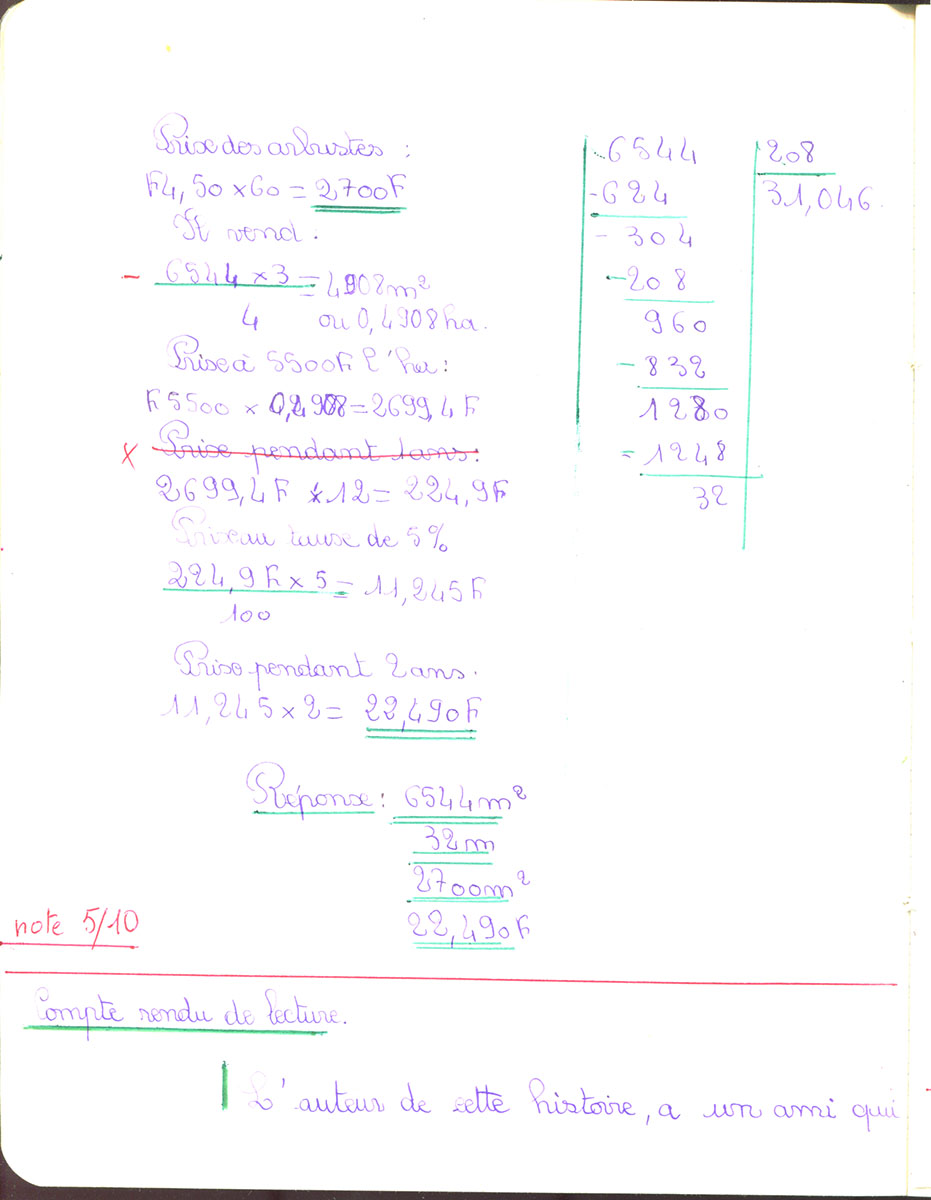 Prise des arbustes :
F4,50 × 60 = 2700F
It vend.
- 6544 × 3 = 4908m²
4 ou 0,4908ha.
Prise à 5500F l'ha :
F 5500 × 0,4908 = 2699,4F
× Prise pendant 1ans :
2699,4F × 12 = 224,9F
Prise au tause de 5%
224,9F × 5 = 11,245F
100
Prise pendant 2ans.
11,245 × 2 = 22,490F
-6544 208
-624 31,046.
- 304
-208
960
- 832
1280
= 1248
32
Réponse : 6544m²
32m
2700m²
22,490F
note 5/10
Compte rendu de lecture.
L'auteur de cette histoire, a un ami qui